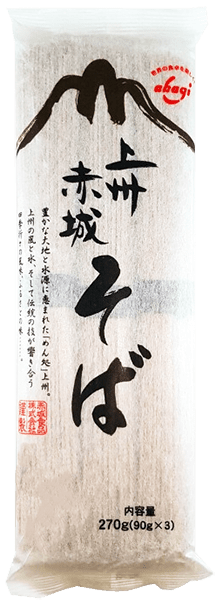 世界の食卓を結ぶ
abagi
上州
赤城
そば
豊かな大地と水源に恵まれた「めん処」上州。
上州の風と水、そして伝統の技が響き合う
赤城食品
株式会社
謹製
内容量
270g(90g×3)